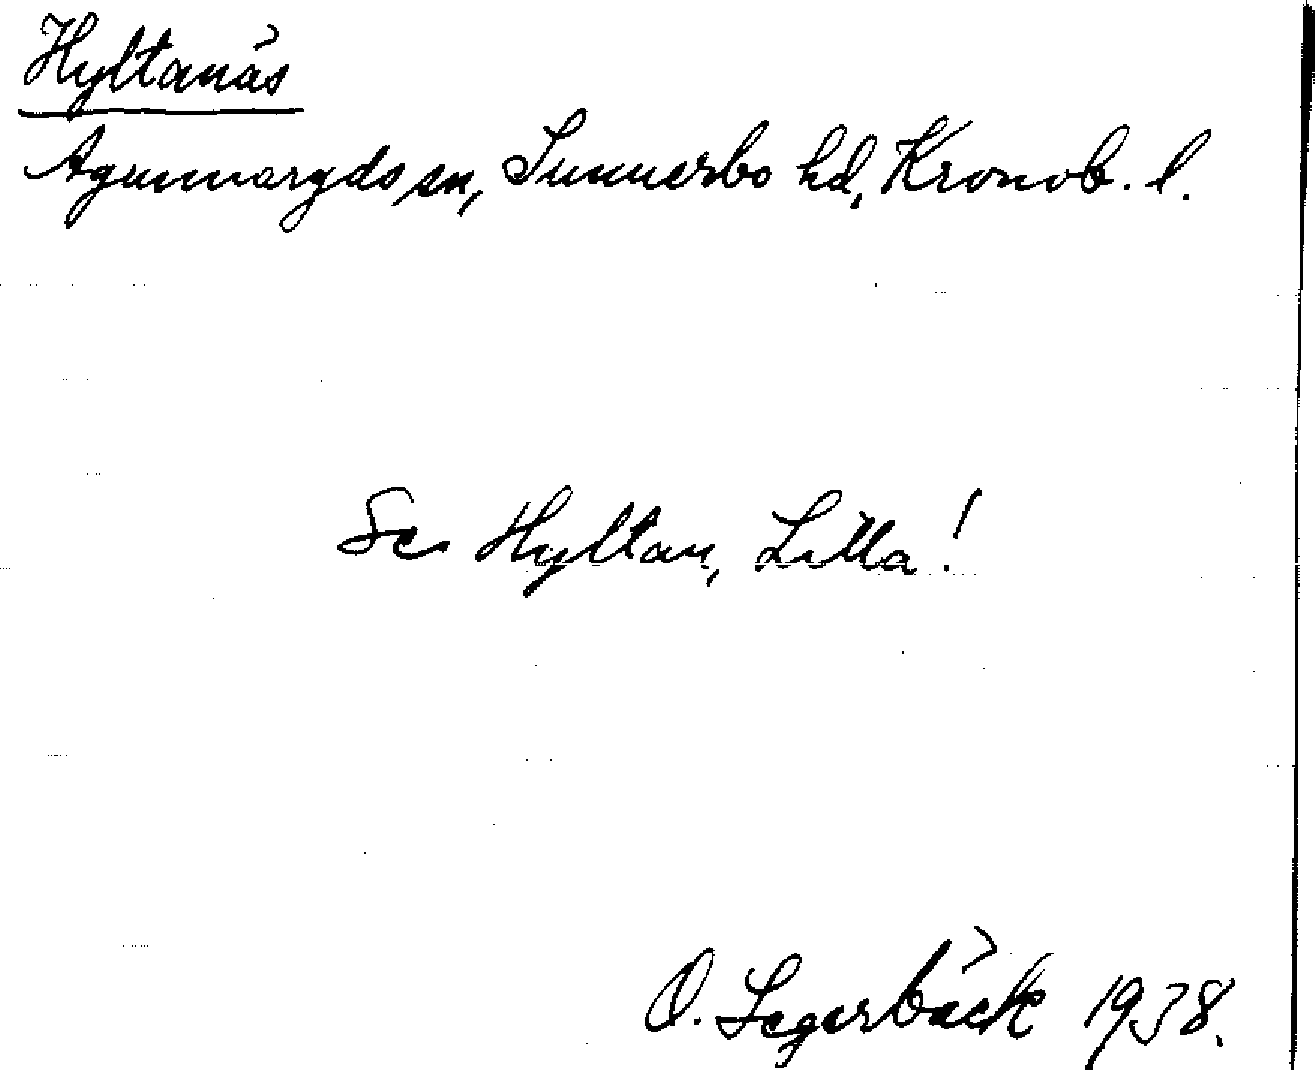 Hyltanäs
Agunnaryds sn, Sunnerbo hd, Kronob. l.
Se Hyltan, Lilla!
O. Segerbäck 1938.